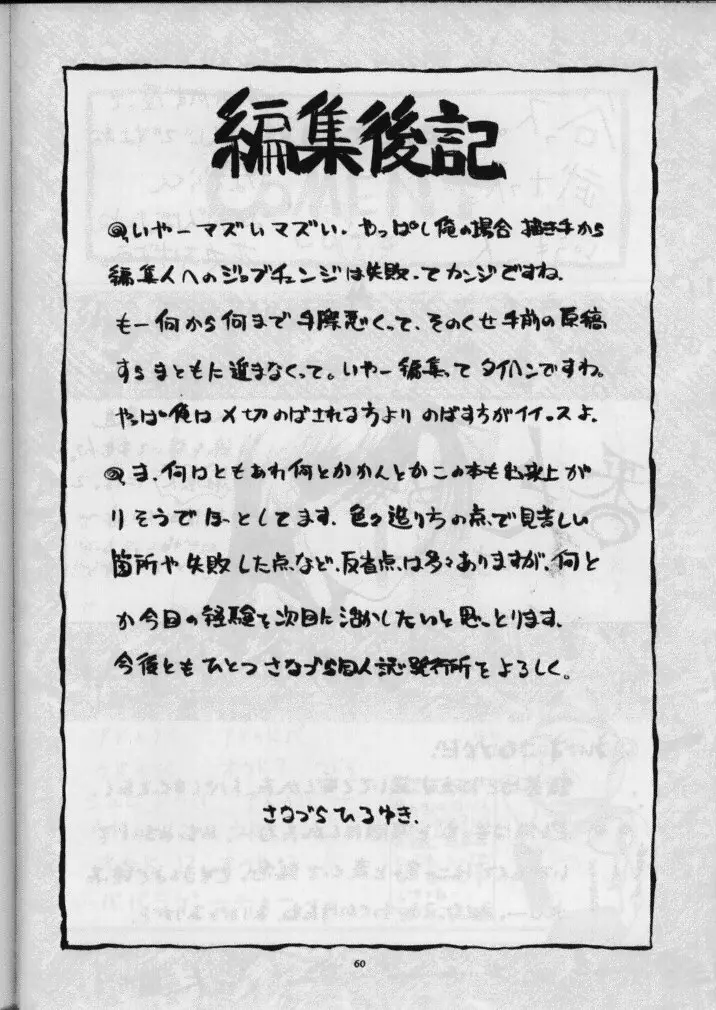 編集後記
◎いやーマズいマズい。やっぱし俺の場合 描き手から
編集人へのジョブチェンジは失敗ってカンジですね。
もー何から何まで手際悪くって、そのくせ手前の原稿
すらまともに進まなくって。いやー編集ってタイヘンですね。
やっぱ俺は〆切のばされる方より のばす方がイイっスよ。
◎ま、何はともあれ何とかかんとかこの本も出来上が
りそうでほっとしてます。色々造りちの点で見苦しい
箇所や失敗した点など、反省点は多々ありますが、何と
か今回の経験を次回に活かしたいと思っとります。
今後ともひとつ さなづら同人誌発行所をよろしく。
さなづらひろゆき.
60